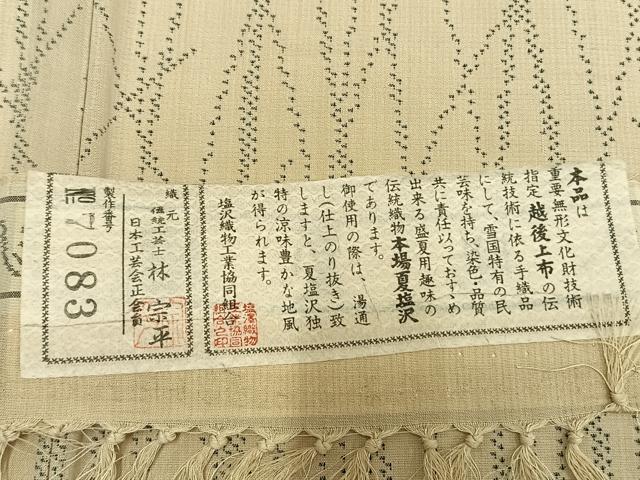 本品は
重要無形文化財技術
指定越後上布の伝
統技術に依る手織品
にして、雪国特有の民
芸味を持ち、染色・品質
共に責任以っておすゝめ
出来る盛夏用趣味の
伝統織物本場夏塩沢
であります。
御使用の際は、湯通
し(仕上のり抜き)致
しますと、夏塩沢独
特の涼味豊かな地風
が得られます。
塩沢織物工業協同組合
塩沢織物
工業協同
組合之印
織元
伝統工芸士 林 宗平
日本工芸会正会員
製作番号
№ 7083